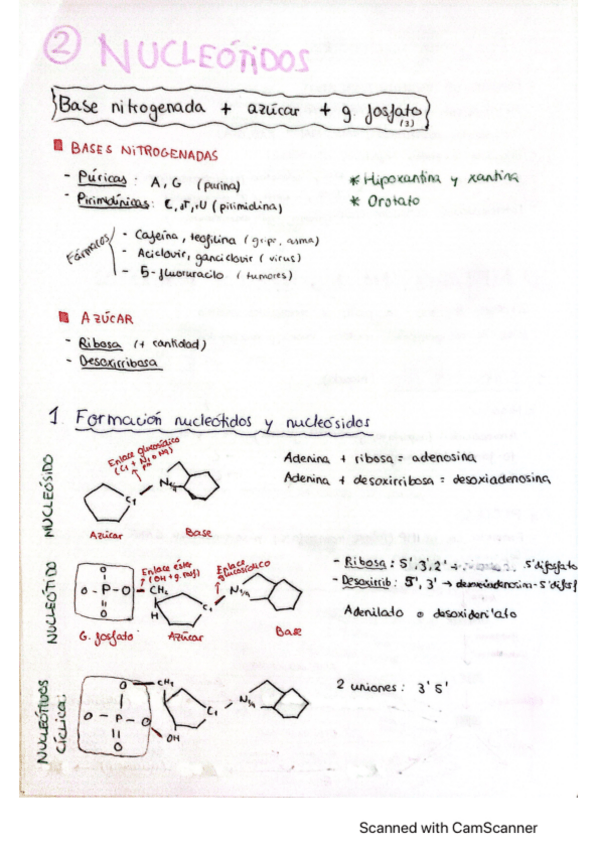 2 NUCLEÓTIDOS
Base nitrogenada + azúcar + g. fosfato (3)
BASES NITROGENADAS
- Púricas: A, G (purina)
- Pirimidínicas: C, T, U (pirimidina)
* Hipoxantina y xantina
* Orotato
Fármacos
- Cafeína, teofilina (gripe, asma)
- Aciclovir, ganciclovir (virus)
- 5-fluoruracilo (tumores)
AZÚCAR
- Ribosa (+ cantidad)
- Desoxirribosa
1. Formación nucleótidos y nucleósidos
NUCLEÓSIDO
Enlace glucosídico
(C1 + N1 o N9)
C1
N1/9
Azúcar
Base
Adenina + ribosa = adenosina
Adenina + desoxirribosa = desoxiadenosina
NUCLEÓTIDO
O - P - O
O
CH2
H
Enlace éster
(OH + g. fosf)
Enlace glucosídico
C1
N1/9
G. fosfato
Azúcar
Base
- Ribosa: 5', 3', 2' 5'difosfato
- Desoxirrib: 5', 3' → desoxiadenosina-5'difosf
Adenilado o desoxidenilato
NUCLEÓTIDOS CÍCLICA:
O
CH2
O - P - O
O
OH
C1
N1/9
2 uniones: 3' 5'
Scanned with CamScanner